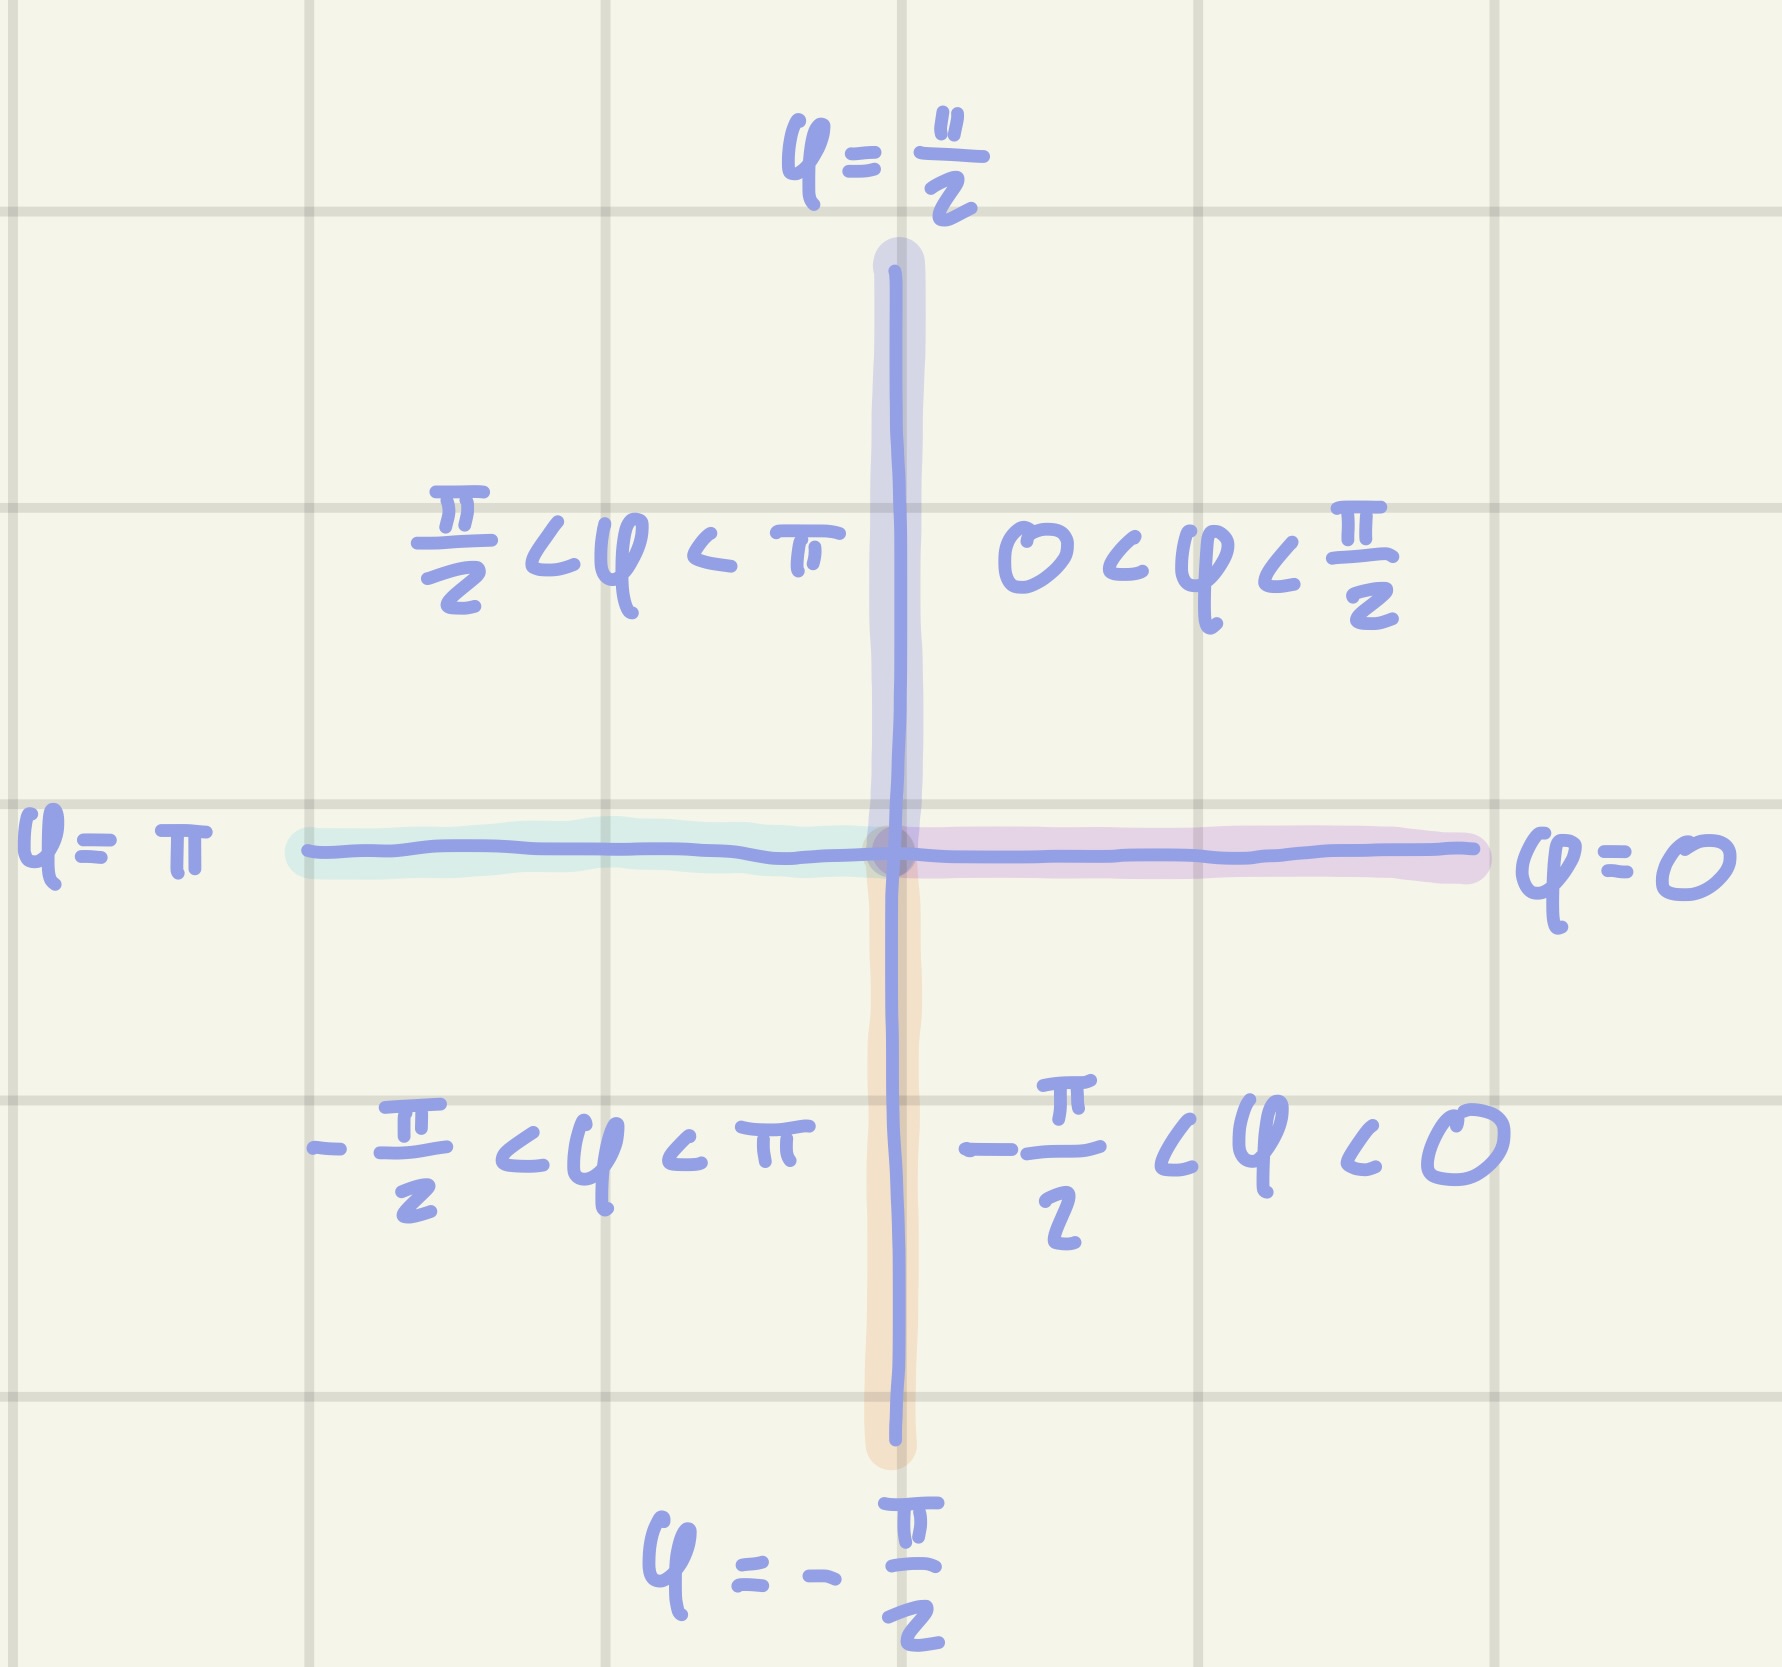 φ = π/2
π/2 < φ < π
0 < φ < π/2
φ = π
φ = 0
- π/2 < φ < π
- π/2 < φ < 0
φ = - π/2